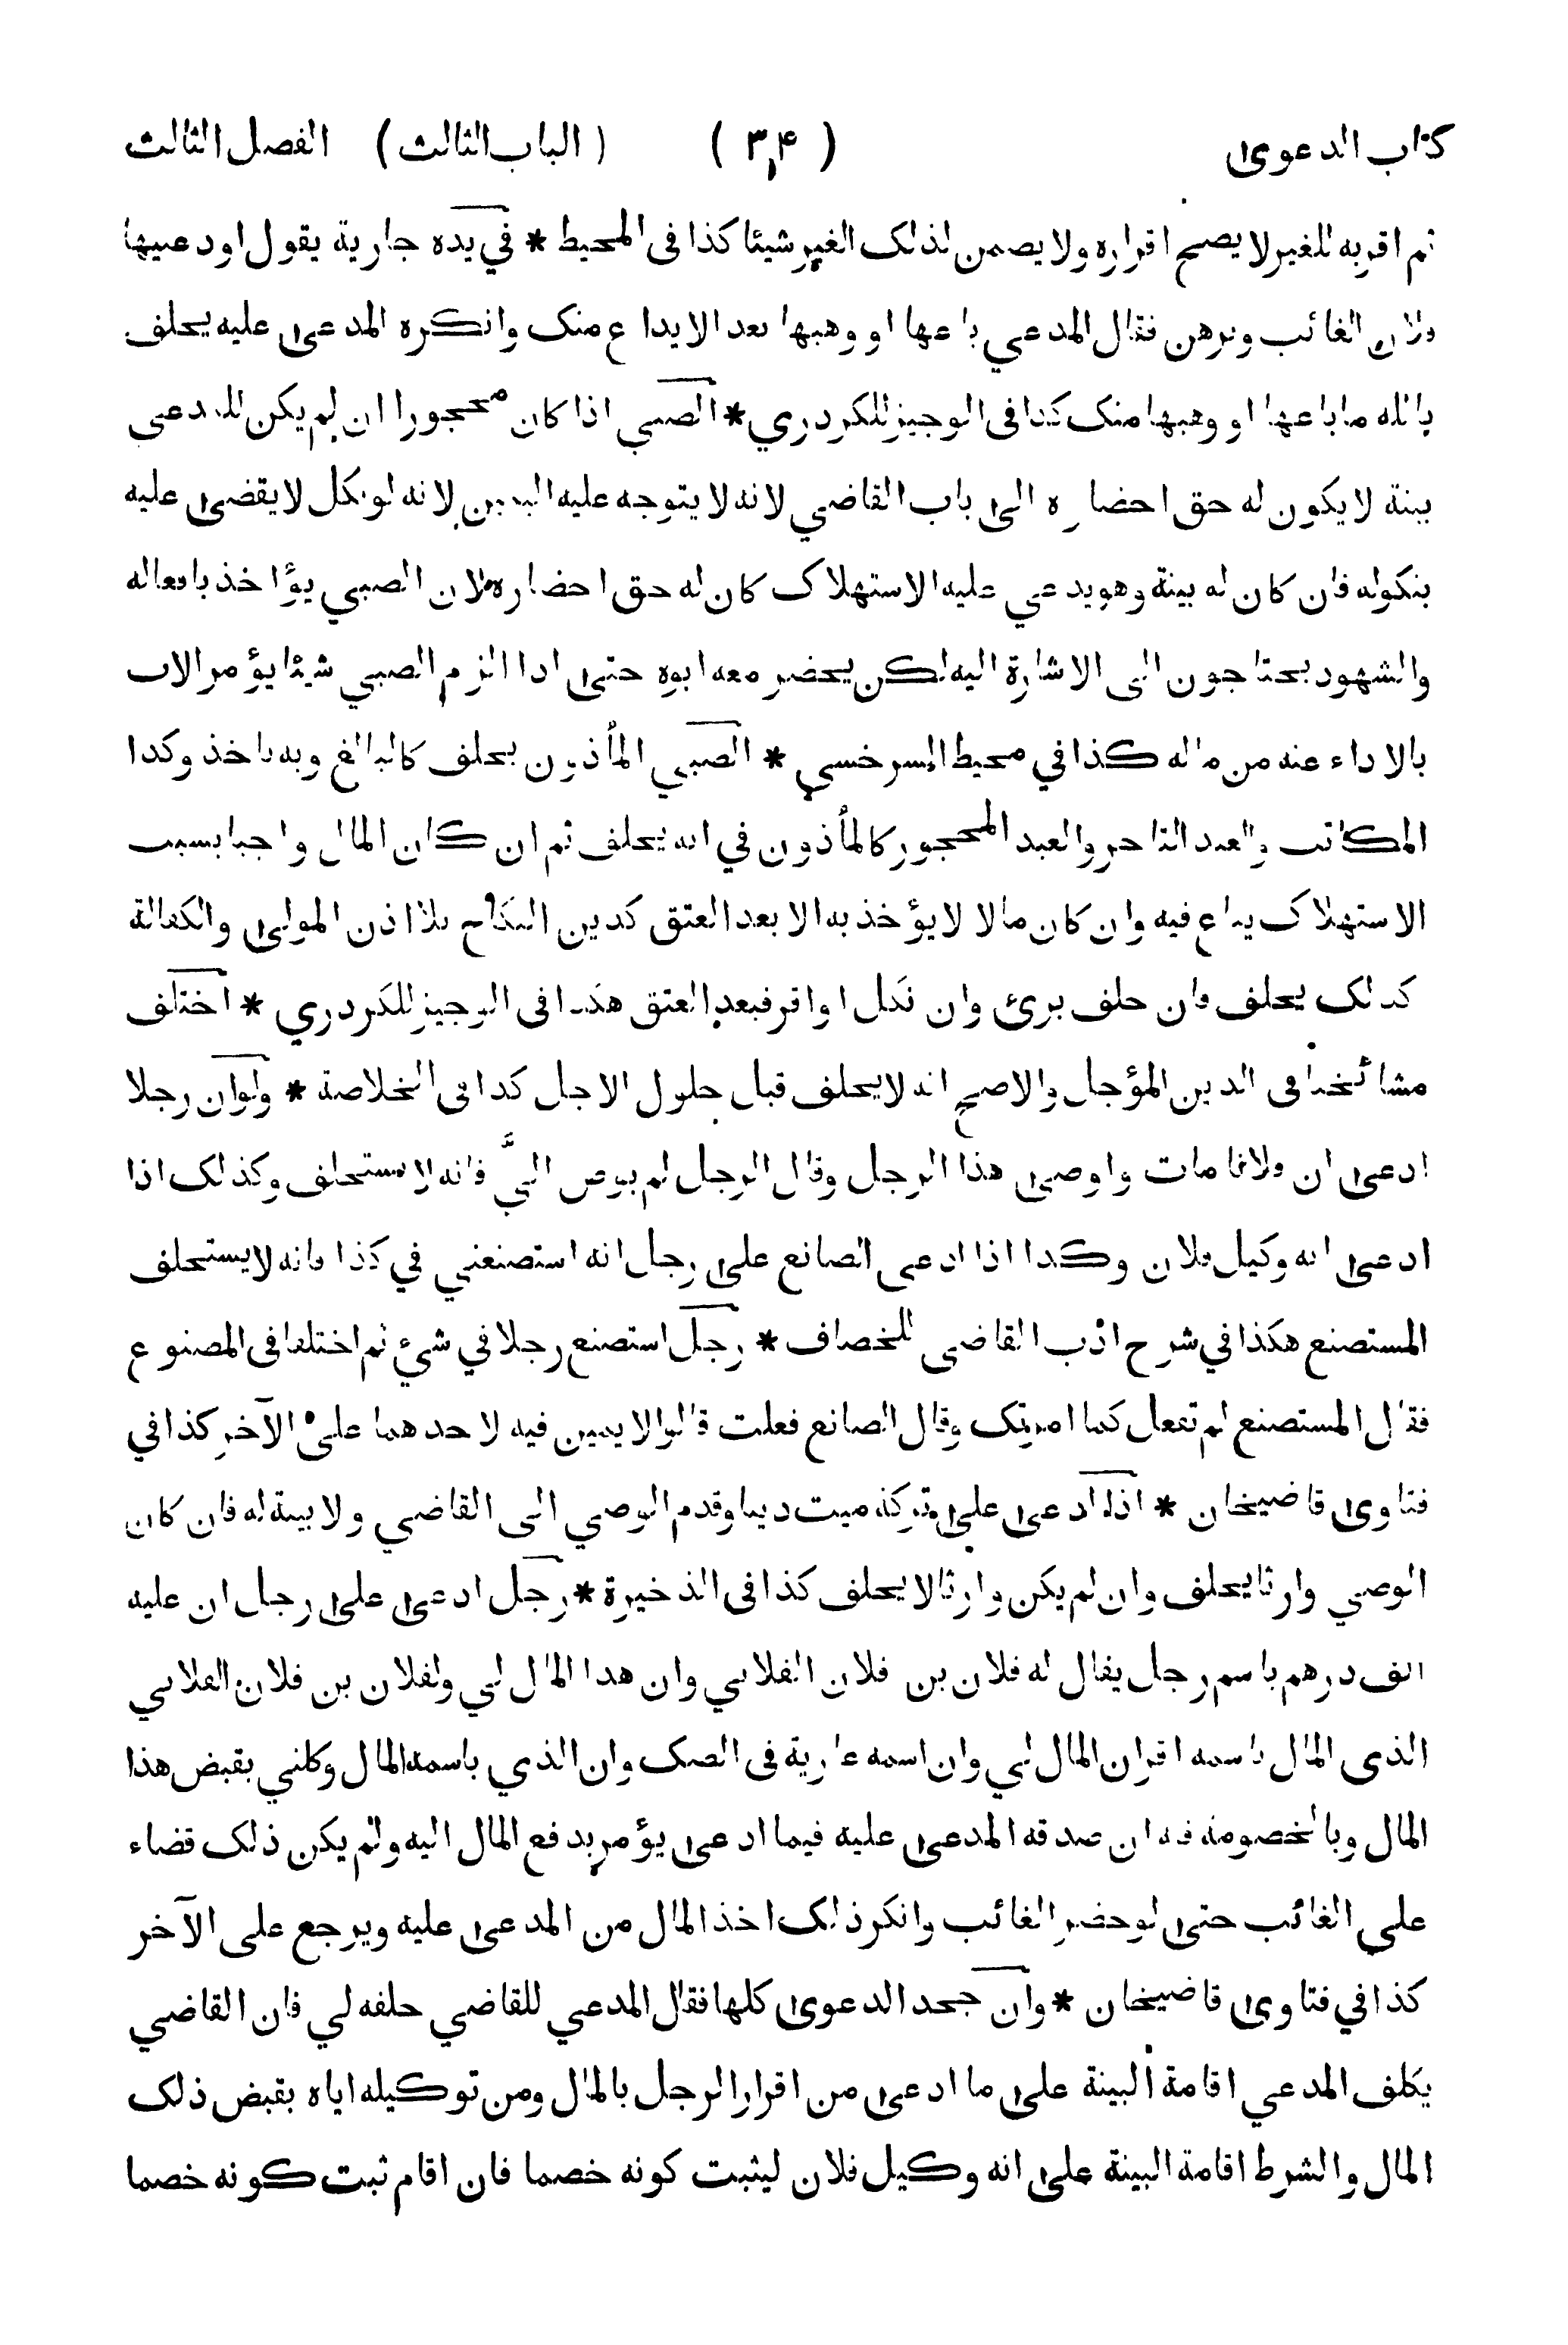 كتاب الدعوى ( ٣٫۴ ) ( الباب الثالث ) الفصل الثالث
ثم اقر به للغير لا يصح اقراره ولا يضمن لذلك الغير شيئا كذا فى المحيط * في يده جارية يقول اودعنيها
فلان الغائب وبرهن فقال المدعي باعها او وهبها بعد الايداع منك وانكره المدعى عليه يحلف
بالله ما باعها او وهبها منك كذا فى الوجيز للكردري * الصبي اذا كان محجورا ان لم يكن للمدعى
بينة لا يكون له حق احضاره الى باب القاضي لانه لا يتوجه عليه اليمين لانه لو نكل لا يقضى عليه
بنكوله فان كان له بينة وهو يدعي عليه الاستهلاك كان له حق احضاره لان الصبي يؤاخذ بافعاله
والشهود يحتاجون الى الاشارة اليه لكن يحضر معه ابوه حتى اذا الزم الصبي شيئا يؤمر الاب
بالاداء عنه من ماله كذا في محيط السرخسي * الصبي المأذون يحلف كالبالغ وبه ناخذ وكذا
المكاتب والعبد التاجر والعبد المحجور كالمأذون في انه يحلف ثم ان كان المال واجبا بسبب
الاستهلاك يباع فيه وان كان مالا لا يؤخذ به الا بعد العتق كدين النكاح بلا اذن المولى والكفالة
كذلك يحلف فان حلف برئ وان نكل او اقر فبعد العتق هكذا فى الوجيز للكردري * اختلف
مشائخنا فى الدين المؤجل والاصح انه لا يحلف قبل حلول الاجل كذا فى الخلاصة * ولو ان رجلا
ادعى ان فلانا مات واوصى هذا الرجل وقال الرجل لم يوص اليَّ فانه لا يستحلف وكذلك اذا
ادعى انه وكيل فلان وكذا اذا ادعى الصانع على رجل انه استصنعني في كذا فانه لا يستحلف
المستصنع هكذا في شرح ادب القاضى للخصاف * رجل استصنع رجلا في شئ ثم اختلفا فى المصنوع
فقال المستصنع لم تفعل كما امرتك وقال الصانع فعلت قالوا لا يمين فيه لاحدهما على الآخر كذا في
فتاوى قاضيخان * اذا ادعى على تركة ميت دينا وقدم الوصي الى القاضي ولا بينة له فان كان
الوصي وارثا يحلف وان لم يكن وارثا لا يحلف كذا فى الذخيرة * رجل ادعى على رجل ان عليه
الف درهم باسم رجل يقال له فلان بن فلان الفلاني وان هذا المال لي ولفلان بن فلان الفلاني
الذى المال باسمه اقر ان المال لي وان اسمه عارية فى الصك وان الذي باسمه المال وكلني بقبض هذا
المال وبالخصومة فيه ان صدقه المدعى عليه فيما ادعى يؤمر بدفع المال اليه ولم يكن ذلك قضاء
على الغائب حتى لو حضر الغائب وانكر ذلك اخذ المال من المدعى عليه ويرجع على الآخر
كذا في فتاوى قاضيخان * وان جحد الدعوى كلها فقال المدعي للقاضي حلفه لي فان القاضي
يكلف المدعي اقامة البينة على ما ادعى من اقرار الرجل بالمال ومن توكيله اياه بقبض ذلك
المال والشرط اقامة البينة على انه وكيل فلان ليثبت كونه خصما فان اقام ثبت كونه خصما